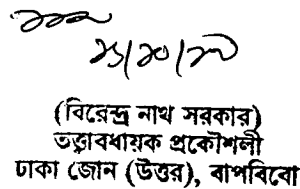 (বিরেন্দ্র নাথ সরকার)
তত্ত্বাবধায়ক প্রকৌশলী
ঢাকা জোন (উত্তর), বাপবিবো